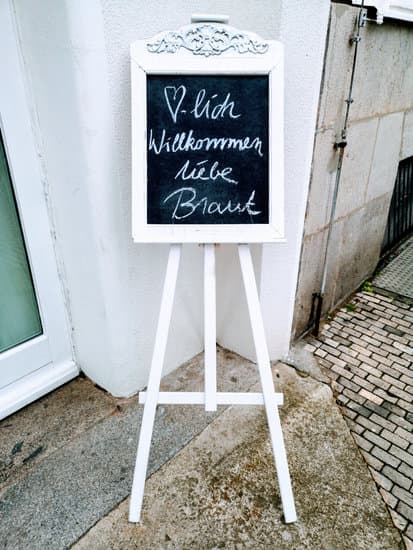 ♡-lich
Willkommen
liebe
Braut